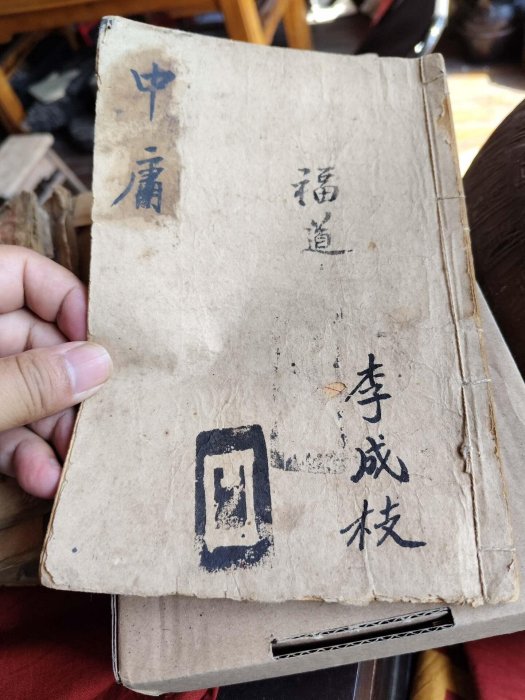 中庸
福道
李成枝